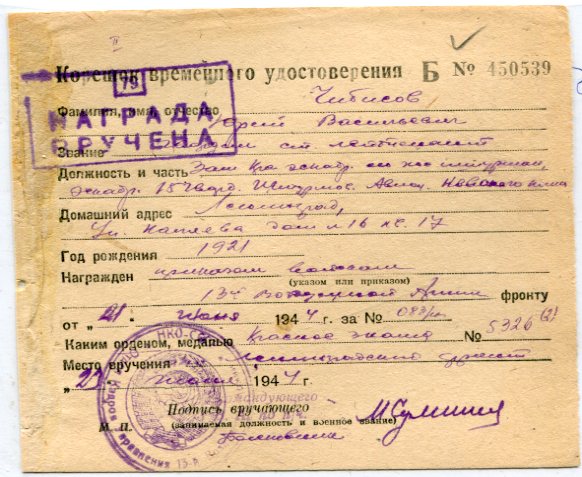 Корешок временного удостоверения Б № 450539
79
НАГРАДА
ВРУЧЕНА
Фамилия, имя, отчество Чибисов
Юрий Васильевич
Звание гвардии ст. лейтенант
Должность и часть Зам. к-ра эскадр.
эскадр. 15 Гвард. Штурмов. Авиац. Невского полка
Домашний адрес Ленинград,
ул. дом № 16 кв. 17
Год рождения 1921
Награжден приказом войскам
(указом или приказом)
13й Воздушной Армии фронту
от „21" июня 1944 г. за №
Каким орденом, медалью Красное знамя № 5326 (2)
Место вручения Ленинградский фронт
„23" 1944 г.
Подпись вручающего
М. П. (занимаемая должность и военное звание)
Полковник